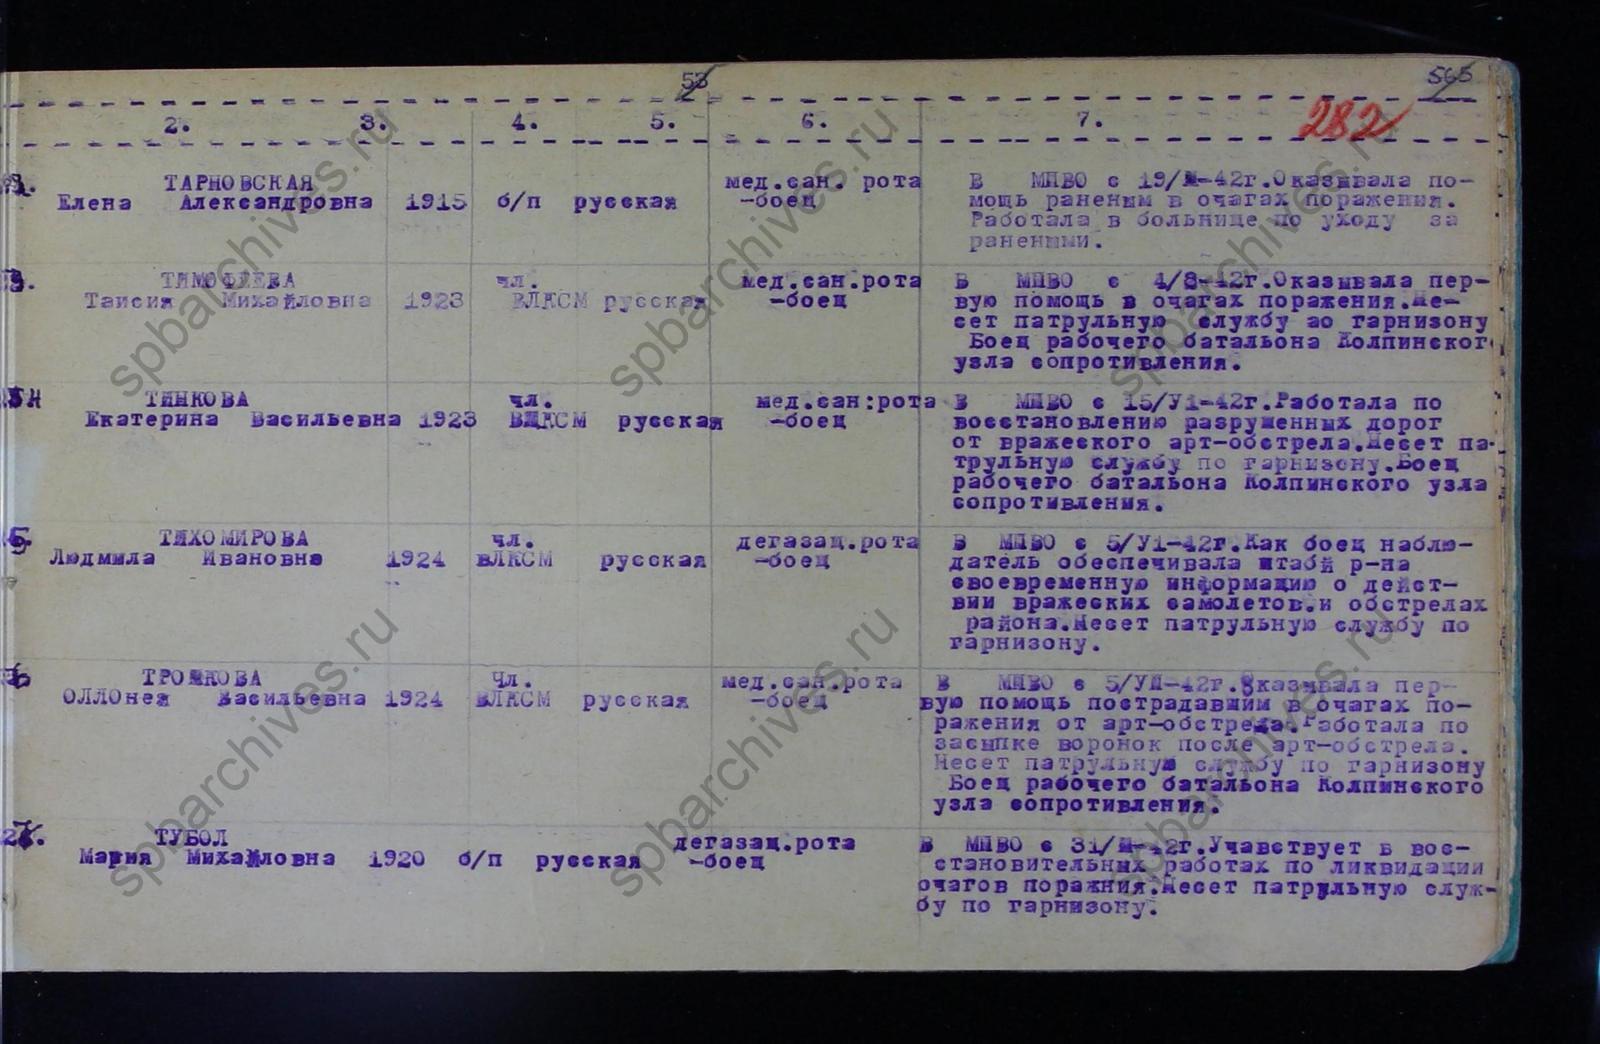 53
565
282
2. 3. 4. 5. 6. 7.
ТАРНОВСКАЯ
Елена Александровна 1915 б/п русская
мед.сан. рота
-боец
В МПВО с 19/Ш-42г.Оказывала по-
мощь раненым в очагах поражения.
Работала в больнице по уходу за
ранеными.
ТИМОФЕЕВА
Таисия Михайловна 1923
чл.
ВЛКСМ русская
мед.сан.рота
-боец
В МПВО с 4/8-42г.Оказывала пер-
вую помощь в очагах поражения.Не-
сет патрульную службу ао гарнизону
Боец рабочего батальона Колпинског
узла сопротивления.
ТИНКОВА
Екатерина Васильевна 1923
чл.
ВЛКСМ русская
мед.сан:рота
-боец
В МПВО с 15/У1-42г.Работала по
восстановлению разрушенных дорог
от вражеского арт-обстрела.Несет па-
трульную службу по гарнизону.Боец
рабочего батальона Колпинского узла
сопротивления.
5.
ТИХОМИРОВА
Людмила Ивановна 1924
чл.
вЛКСМ русская
дегазац.рота
-боец
В МПВО с 5/У1-42г.Как боец наблю-
датель обеспечивала штабй р-на
своевременную информацию о дейст-
вии вражеских самолетов.и обстрелах
района.Несет патрульную службу по
гарнизону.
ТРОШКОВА
ОЛЛОнея Васильевна 1924
Чл.
ВЛКСМ русская
мед.сан.рота
-боец
В МПВО с 5/УП-42г.Оказывала пер-
вую помощь пострадавшим в очагах по-
ражения от арт-обстрела.Работала по
засыпке воронок после арт-обстрела.
Несет патрульную службу по гарнизону
Боец рабочего батальона Колпинского
узла сопротивления.
27.
ТУБОЛ
Мария Михайловна 1920 б/п русская
дегазац.рота
-боец
В МПВО с 31/Ш-42г.Учавствует в вос-
становительных работах по ликвидации
очагов поражния.Несет патрульную служ-
бу по гарнизону.
spbarchives.ru
spbarchives.ru
spbarchives.ru
spbarchives.ru
spbarchives.ru
spbarchives.ru